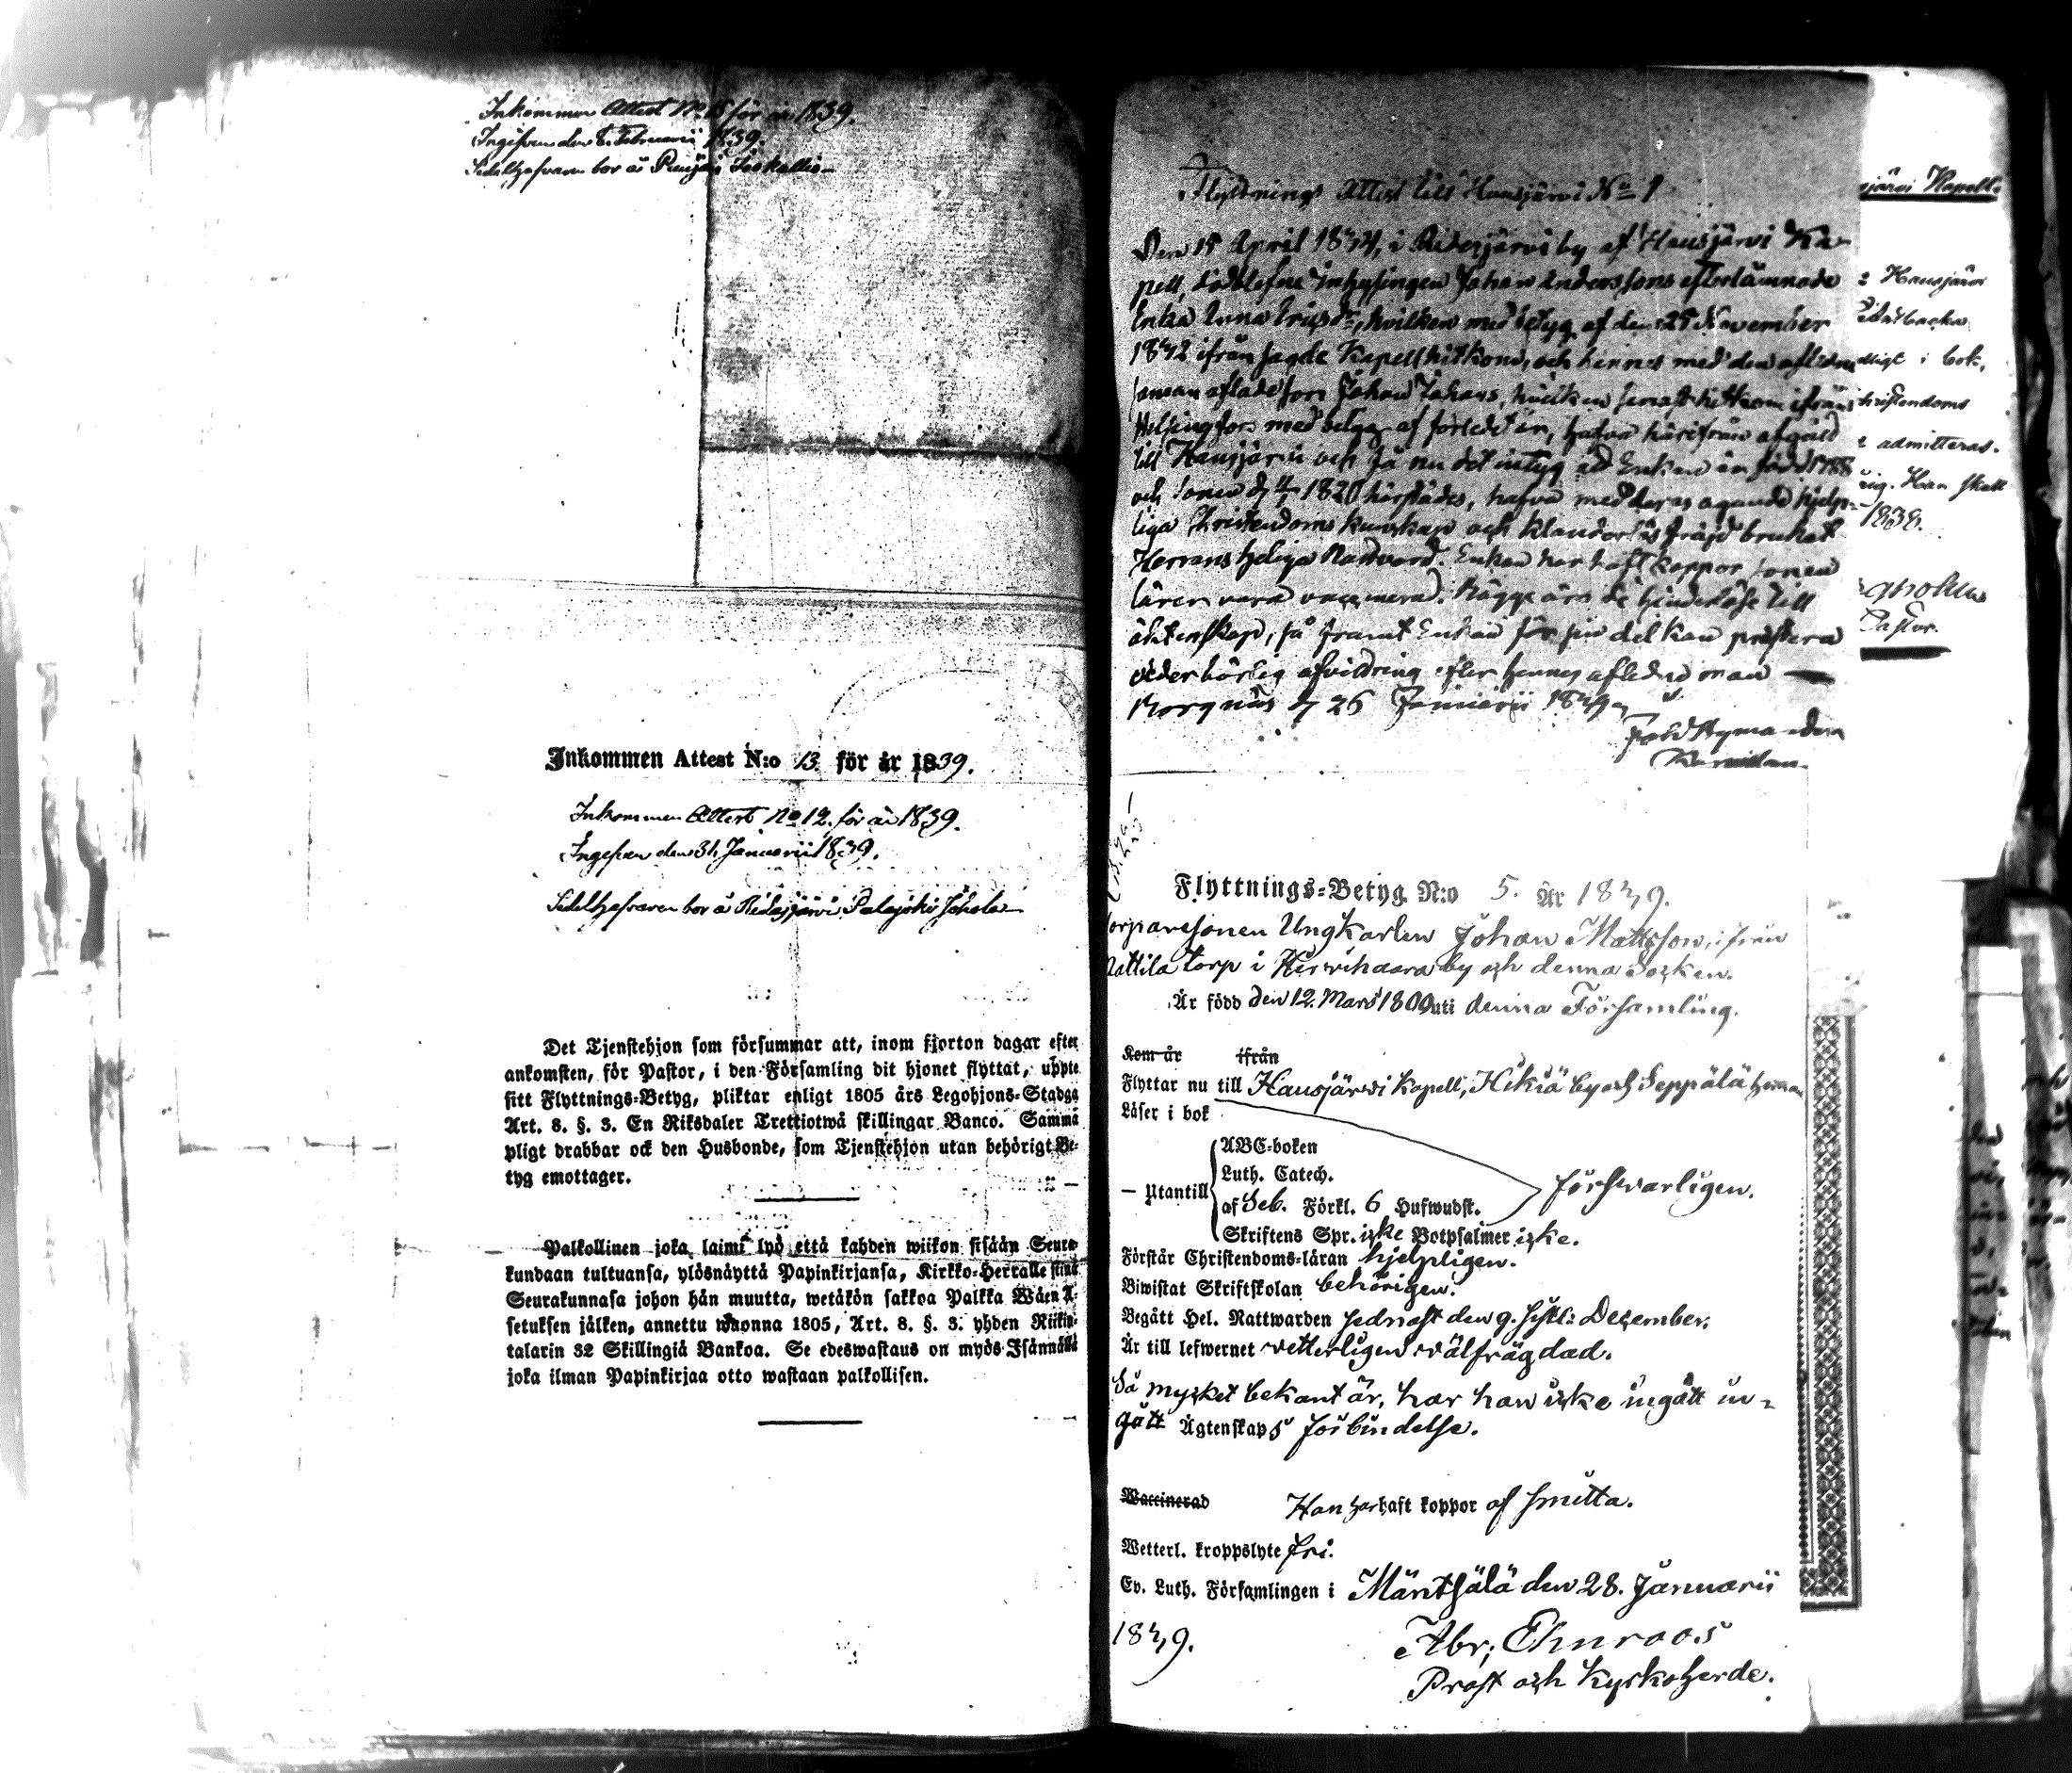 Inkommen Attest No 15 för år 1839.
Ingifven den 8. Februarii 1839.
Sedelhafvaren bor å
Inkommen Attest N:o 13 för år 1839.
Inkommen Attest No 12. för år 1839.
Ingifven den 31. Januarii 1839.
Sedelhafvaren bor å Ridasjärvi Palojoki
Det Tjenstehjon som försummar att, inom fjorton dagar efter
ankomsten, för Pastor, i den Församling dit hjonet flyttat, uppte
sitt Flyttnings-Betyg, pliktar enligt 1805 års Legohjons-Stadga
Art. 8. §. 3. En Riksdaler Trettiotwå skillingar Banco. Samma
pligt drabbar ock den Husbonde, som Tjenstehjon utan behörigt Be-
tyg emottager.
Palkollinen joka laimi lyö että kahden wiikon sisään Seura-
kundaan tultuansa, ylösnäyttä Papinkirjansa, Kirkko-Herralle siinä
Seurakunnasa johon hän muutta, wetäkön sakkoa Palkka Wäen A-
setuksen jälken, annettu wuonna 1805, Art. 8. §. 3. yhden Riikin-
talarin 32 Skillingiä Bankoa. Se edeswastaus on myös Isännällä
joka ilman Papinkirjaa otto wastaan palkollisen.
Flyttnings Attest till Hausjärvi No 1
Den 15 April 1834, i Ridasjärvi by af Hausjärvi Ka-
pell, dödblefne Inhysingen Johan Anderssons efterlämnade
Enka Anna Ericsdr, hvilken med betyg af den 29 November
1832 ifrån sagde Kapell hitkom, och hennes med den aflidne
mannen aflade son Johan Johans, hvilken senast hitkom ifrån
Helsingfors med betyg af förledet år, hafva härifrån afgått
till Hausjärvi och få nu det intyg att Enkan är född 1788
och Sonen d 4/1 1820 härstädes, hafva med deras ägande hjelp-
liga Christendoms kunskap och klanderlös fräjd brukat
Herrans heliga Nattvard. Enkan har haft koppor sonen
lären vara vaccinerad. Bägge äro de hinderlöse till
äktenskap, så framt Enkan för sin del kan prestera
vederbörlig afvittring efter hennes aflidne man
Borgnäs d 26 Januarii 1839
Flyttnings-Betyg. N:o 5. År 1839.
orparesonen Ungkarlen Johan Mattsson, ifrån
attila torp i Hirvihaara by och denna Socken.
Är född den 12. Mars 1809 uti denna Församling.
Kom år ifrån
Flyttar nu till Hausjärwi Kapell, Hikiä by och Seppälä hemman
Läser i bok
— Utantill
ABC-boken
Luth. Catech.
af Seb. Förkl. 6 Hufwudst.
Skriftens Spr. icke Botpsalmer icke.
försvarligen.
Förstår Christendoms-läran hjelpligen.
Biwistat Skriftskolan behörigen.
Begått Hel. Nattwarden sednast den 9. sistl: December.
Är till lefwernet vetterligen välfrägdad.
Så mycket bekant är, har han icke ingått in-
gått Ägtenskaps förbindelse.
Waccinerad Han har haft koppor af smitta.
Wetterl. kroppslyte fri.
Ev. Luth. Församlingen i Mäntsälä den 28. Januarii
1839.
Abr. Ehnroos
Prost och Kyrkoherde.
järvi Kapell.
Hausjärvi
i bok,
hristendoms
admitteras.
Han skall
1838.
Pastor.